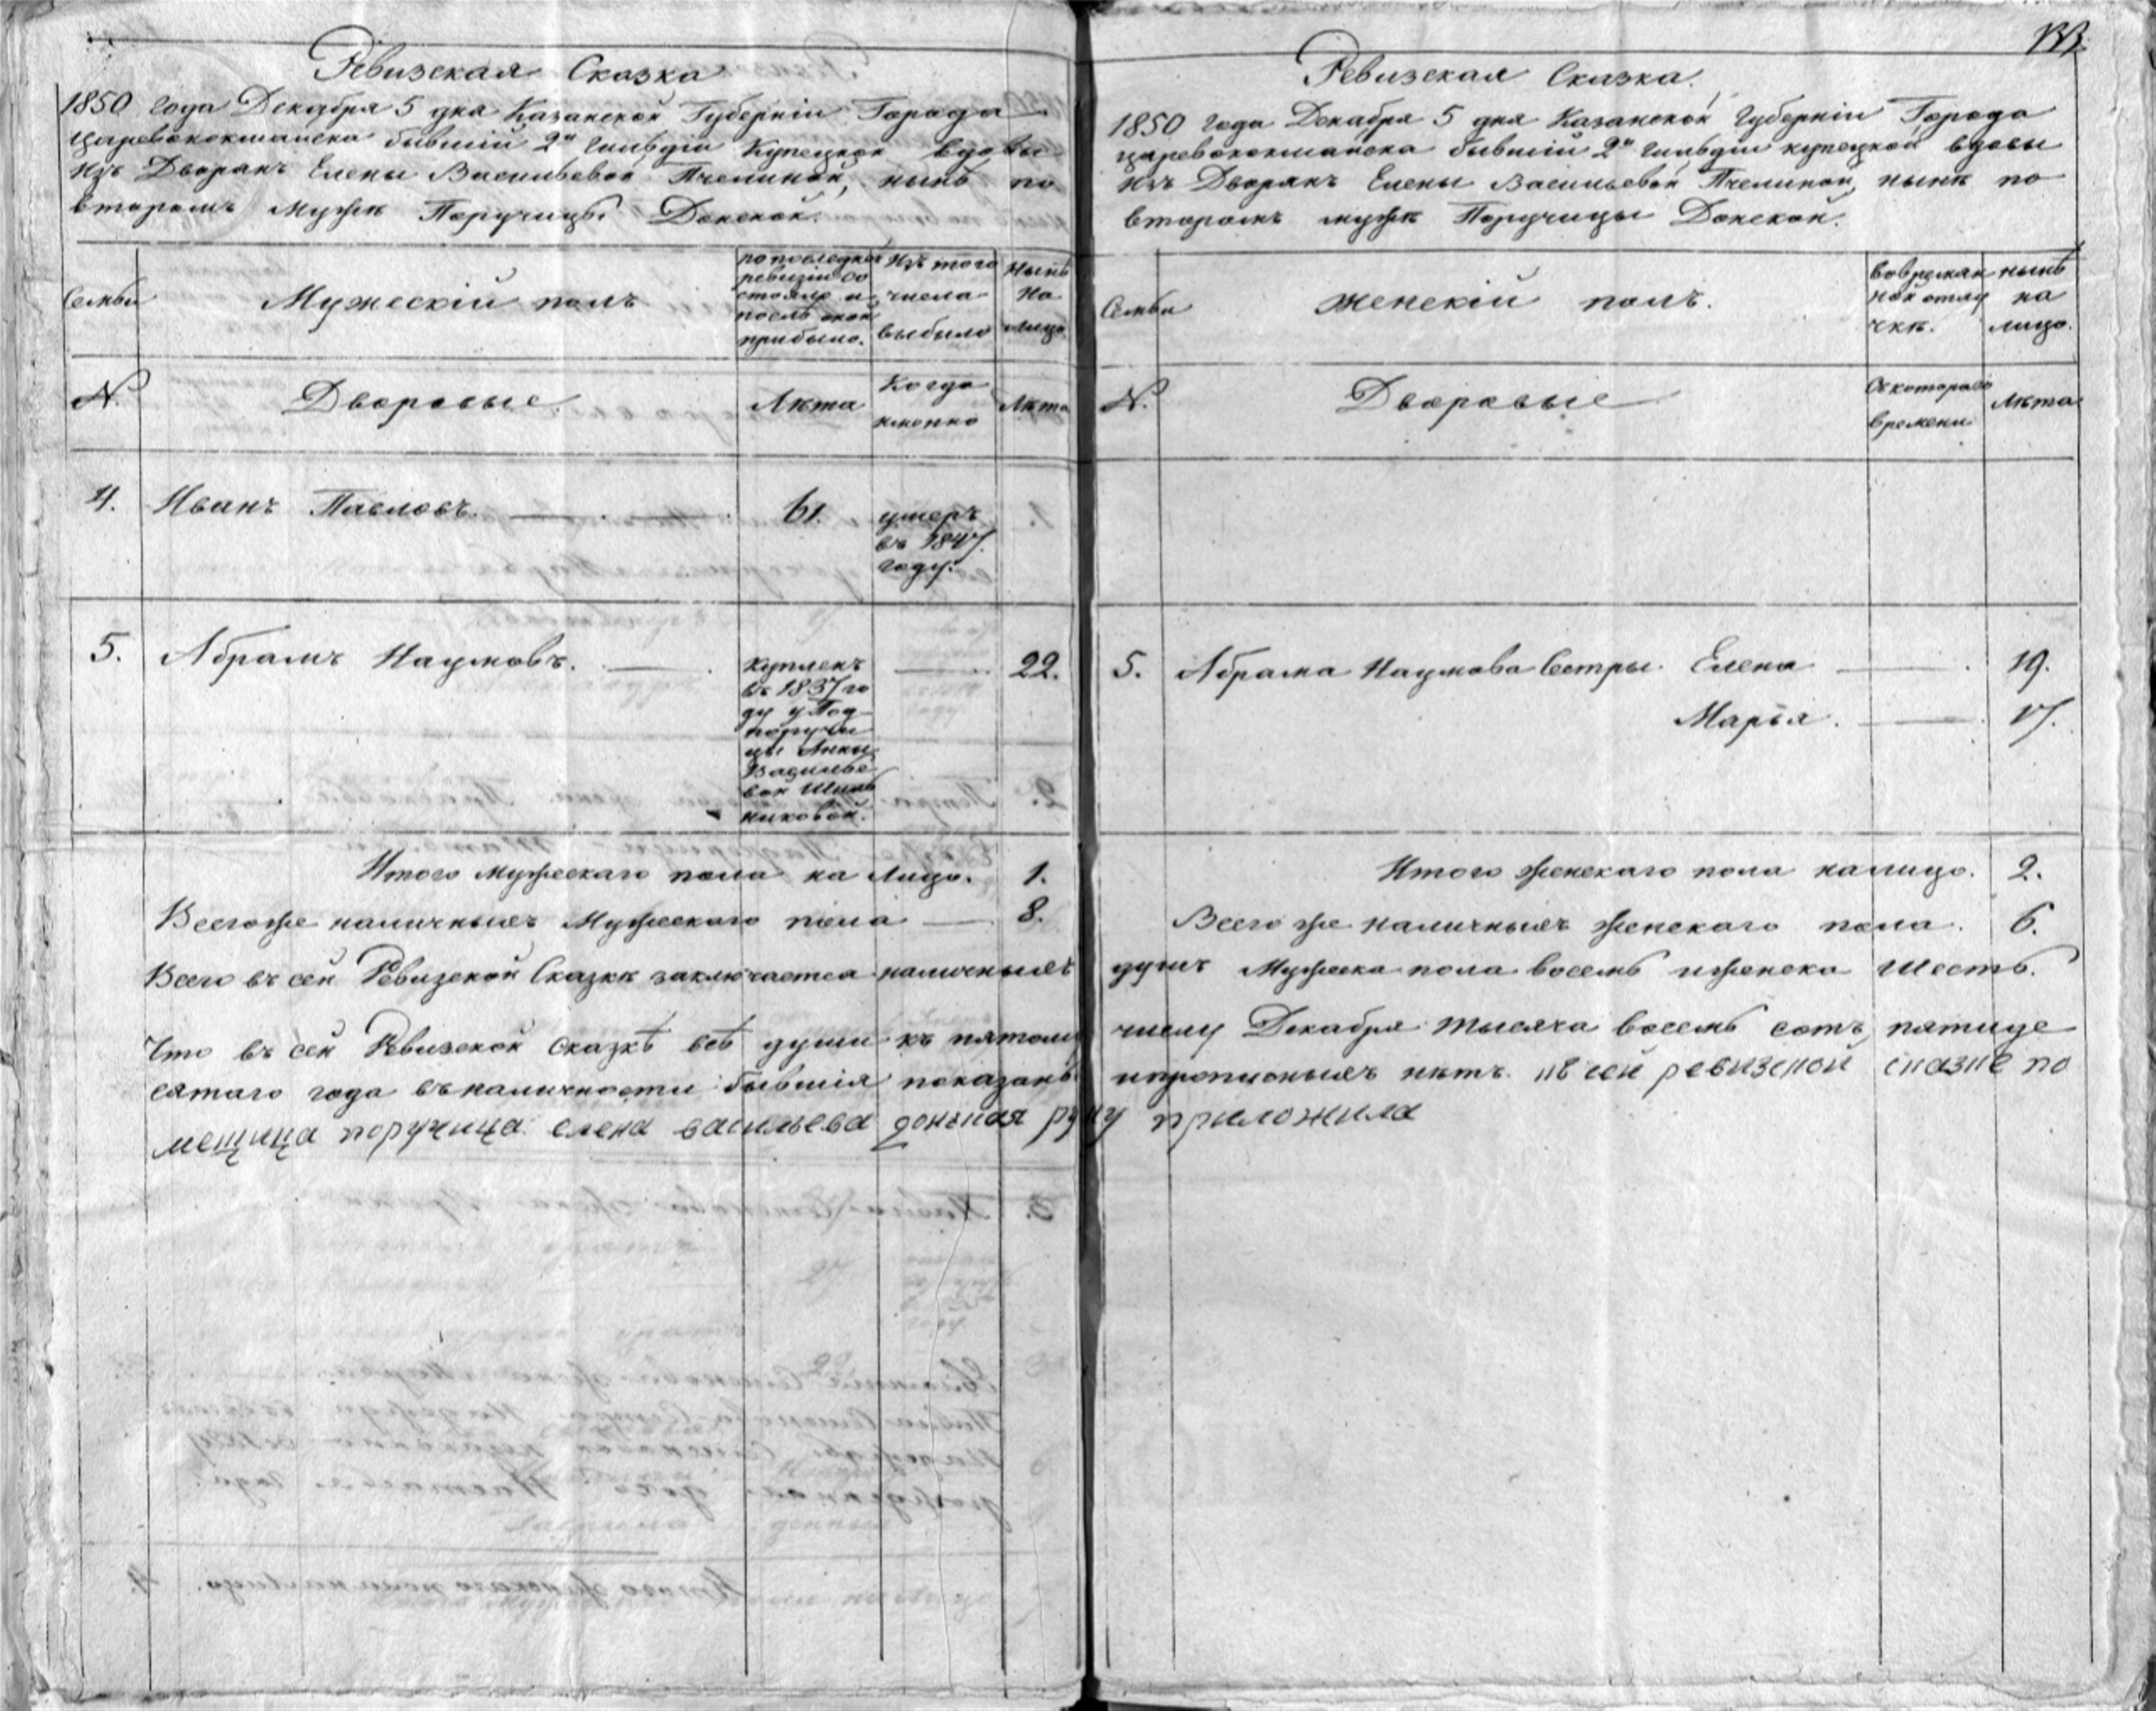 Ревизская Сказка
1850 года Декабря 5 дня Казанской Губерніи Города
Царевококшайска бывшій 2й Гильдіи Купецкой вдовы
изъ Дворянъ Елены Васильевой Пчелиной, нынѣ по
второмъ мужѣ Поручицы Донской.
Семьи
Мужескій полъ
по последней
ревизіи со
стояло и
послѣ оной
прибыло.
Изъ того
числа
выбыло
Нынѣ
на
лицо.
№.
Дворовые.
Лѣта
Когда
именно
Лѣта
4. Иванъ Павловъ. 61. умеръ
въ 1847
году.
5. Абрамъ Наумовъ. 22.
купленъ
въ 1837 го
ду у Под
поручи
цы Анны
Василье
вой
никовой.
Итого мужескаго пола на лицо. 1.
Всего же наличныхъ Мужескаго пола 8.
Всего въ сей Ревизской Сказкѣ заключается наличныхъ
Что въ сей Ревизской сказкѣ всѣ души къ пятому
сятаго года въ наличности бывшія показаны
мещица поручица елена васильева донская руку
Ревизская Сказка.
1850 года Декабря 5 дня Казанской Губерніи Города
царевококшайска бывшій 2й Гильдіи купецкой вдовы
изъ Дворянъ Елены Васильевой Пчелиной, нынѣ по
второмъ мужѣ Поручицы Донской.
Семьи
Женскій полъ.
во времян
ной отлу
чкѣ.
нынѣ
на
лицо.
№.
Дворовые
Съ котораго
времени
Лѣта
5. Абрама Наумова Сестры. Елена 19.
Марья. 17.
Итого женскаго пола налицо. 2.
Всего же наличныхъ женскаго пола. 6.
душъ Мужеска пола восемь и женска шесть.
числу Декабря тысяча восемь сотъ пятиде
и прописныхъ нѣтъ. къ сей ревизской сказке по
приложила